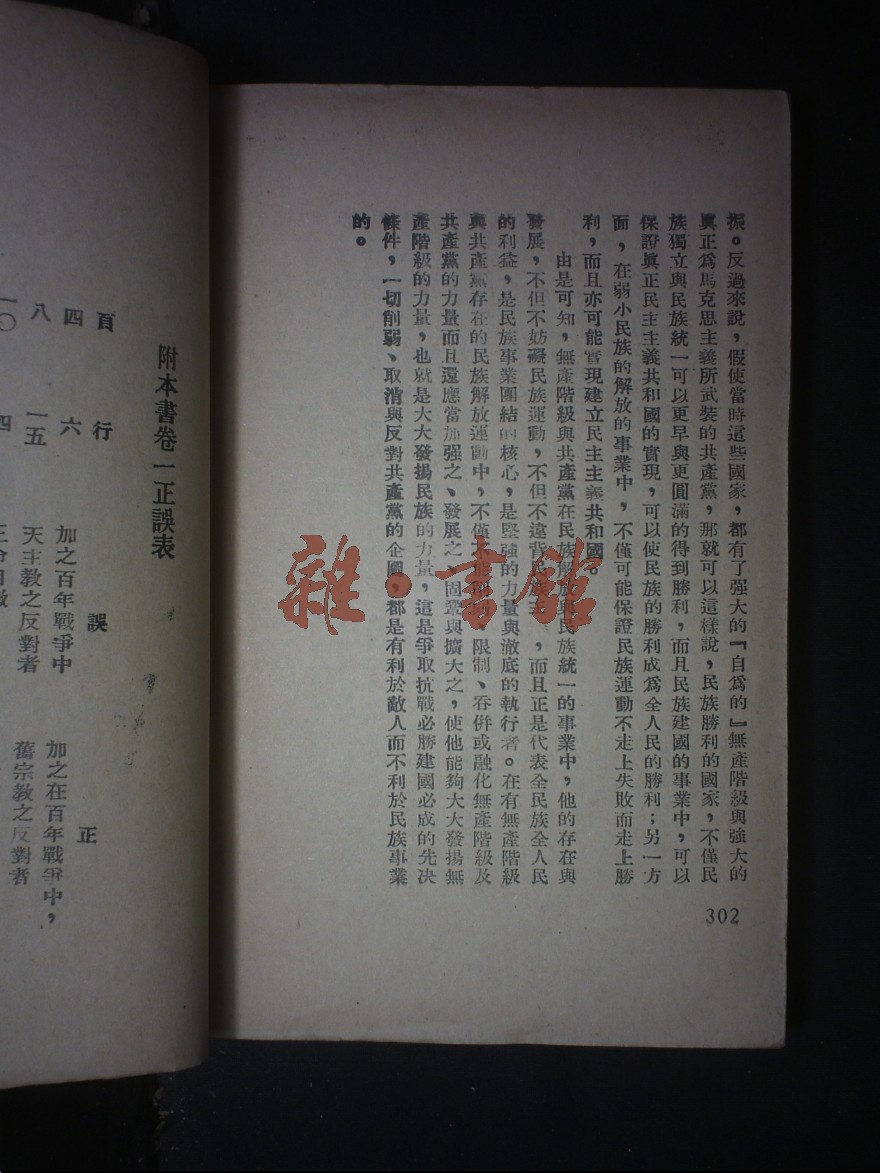 振。反過來說，假使當時這些國家，都有了强大的『自爲的』無產階級與強大的
眞正爲馬克思主義所武裝的共產黨，那就可以這樣說，民族勝利的國家，不僅民
族獨立與民族統一可以更早與更圓滿的得到勝利，而且民族建國的事業中，可以
保證眞正民主主義共和國的實現，可以使民族的勝利成爲全人民的勝利；另一方
面，在弱小民族的解放的事業中，不僅可能保證民族運動不走上失敗而走上勝
利，而且亦可能實現建立民主主義共和國。
由是可知，無產階級與共產黨在民族解放與民族統一的事業中，他的存在與
發展，不但不妨礙民族運動，不但不違背民族主，而且正是代表全民族全人民
的利益，是民族事業團結的核心，是堅強的力量與澈底的執行者。在有無產階級
與共產黨存在的民族解放運動中，不僅不能削弱、限制、吞併或融化無產階級及
共產黨的力量而且還應當加强之、發展之、固鞏與擴大之，使他能夠大大發揚無
產階級的力量，也就是大大發揚民族的力量，這是爭取抗戰必勝建國必成的先決
條件，一切削弱、取消與反對共產黨的企圖，都是有利於敵人而不利於民族事業
的。
302
雜·書館
附本書卷一正誤表
頁 行 誤 正
四 六 加之百年戰爭中 加之在百年戰爭中，
八 一五 天主教之反對者 舊宗教之反對者
一〇 四